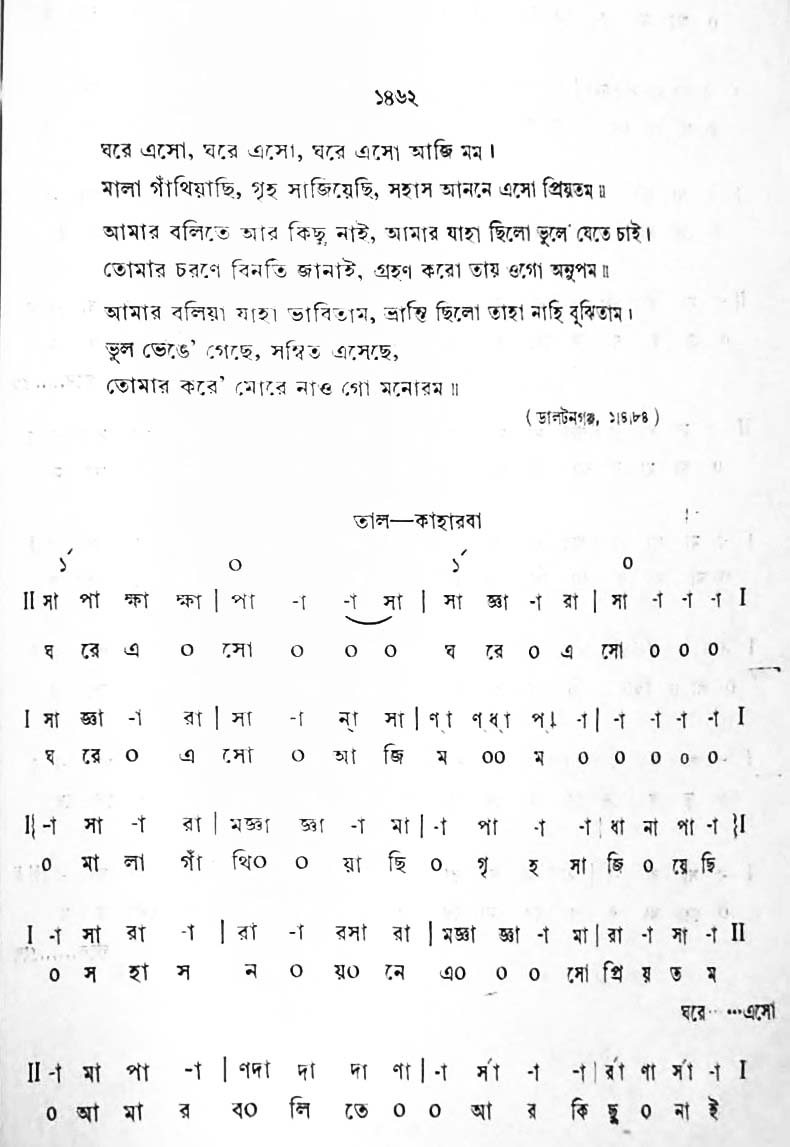 ১৪৬২
ঘরে এসো, ঘরে এসো, ঘরে এসো আজি মম।
মালা গাঁথিয়াছি, গৃহ সাজিয়েছি, সহাস আননে এসো প্রিয়তম॥
আমার বলিতে আর কিছু নাই, আমার যাহা ছিলো ভুলে' যেতে চাই।
তোমার চরণে বিনতি জানাই, গ্রহণ করো তায় ওগো অনুপম॥
আমার বলিয়া যাহা ভাবিতাম, ভ্রান্তি ছিলো তাহা নাহি বুঝিতাম।
ভুল ভেঙে' গেছে, সম্বিত এসেছে,
তোমার করে' মোরে নাও গো মনোরম॥
(ডালটনগঞ্জ, ১।৪।৮৪)
তাল—কাহারবা
১´ ০ ১´ ০
II সা পা ক্ষা ক্ষা | পা -া -া সা | সা জ্ঞা -া রা | সা -া -া -া I
ঘ রে এ ০ সো ০ ০ ০ ঘ রে ০ এ সো ০ ০ ০
I সা জ্ঞা -া রা | সা -া ন্া সা | ণ্া ণ্ধ্া প্া -া | -া -া -া -া I
ঘ রে ০ এ সো ০ আ জি ম ০০ ম ০ ০ ০ ০ ০
I{ -া সা -া রা | মজ্ঞা জ্ঞা -া মা | -া পা -া -া | ধা না পা -া }I
০ মা লা গাঁ থি০ ০ য়া ছি ০ গৃ হ সা জি ০ য়ে ছি
I -া সা রা -া | রা -া রসা রা | মজ্ঞা জ্ঞা -া মা | রা -া সা -া II
০ স হা স ন ০ য়০ নে এ০ ০ ০ সো প্রি য় ত ম
ঘরে.....এসো
II -া মা পা -া | ণদা দা দা ণা | -া র্সা -া -া | র্রা ণা র্সা -া I
০ আ মা র ব০ লি তে ০ ০ আ র কি ছু ০ না ই